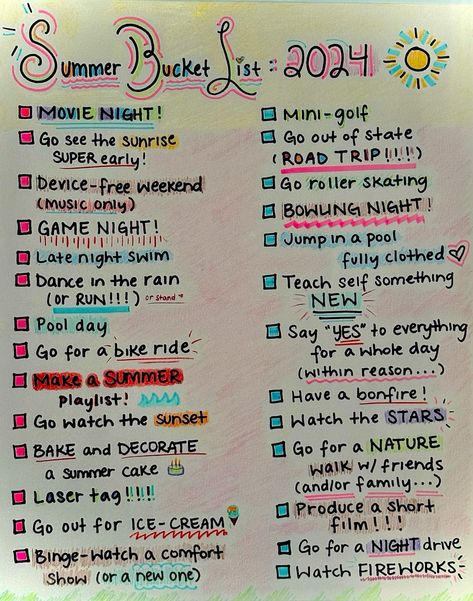 Summer Bucket List: 2024!
MOVIE NIGHT!
Go see the sunrise
SUPER early!
Device-free weekend
(music only)
GAME NIGHT!
Late night swim
Dance in the rain
(or RUN!!!) or stand
Pool day
Go for a bike ride
Make a SUMMER
playlist!
Go watch the sunset
BAKE and DECORATE
a summer cake
Laser tag!!!!
Go out for ICE-CREAM
Binge-watch a comfort
show (or a new one)
Mini-golf
Go out of state
(ROAD TRIP!!!!)
Go roller skating
BOWLING NIGHT!
Jump in a pool
fully clothed
Teach self something
NEW
Say "YES" to everything
for a whole day
(within reason...)
Have a bonfire!
Watch the STARS
Go for a NATURE
walk w/ friends
(and/or family...)
Produce a short
film!!!
Go for a NIGHT drive
Watch FIREWORKS